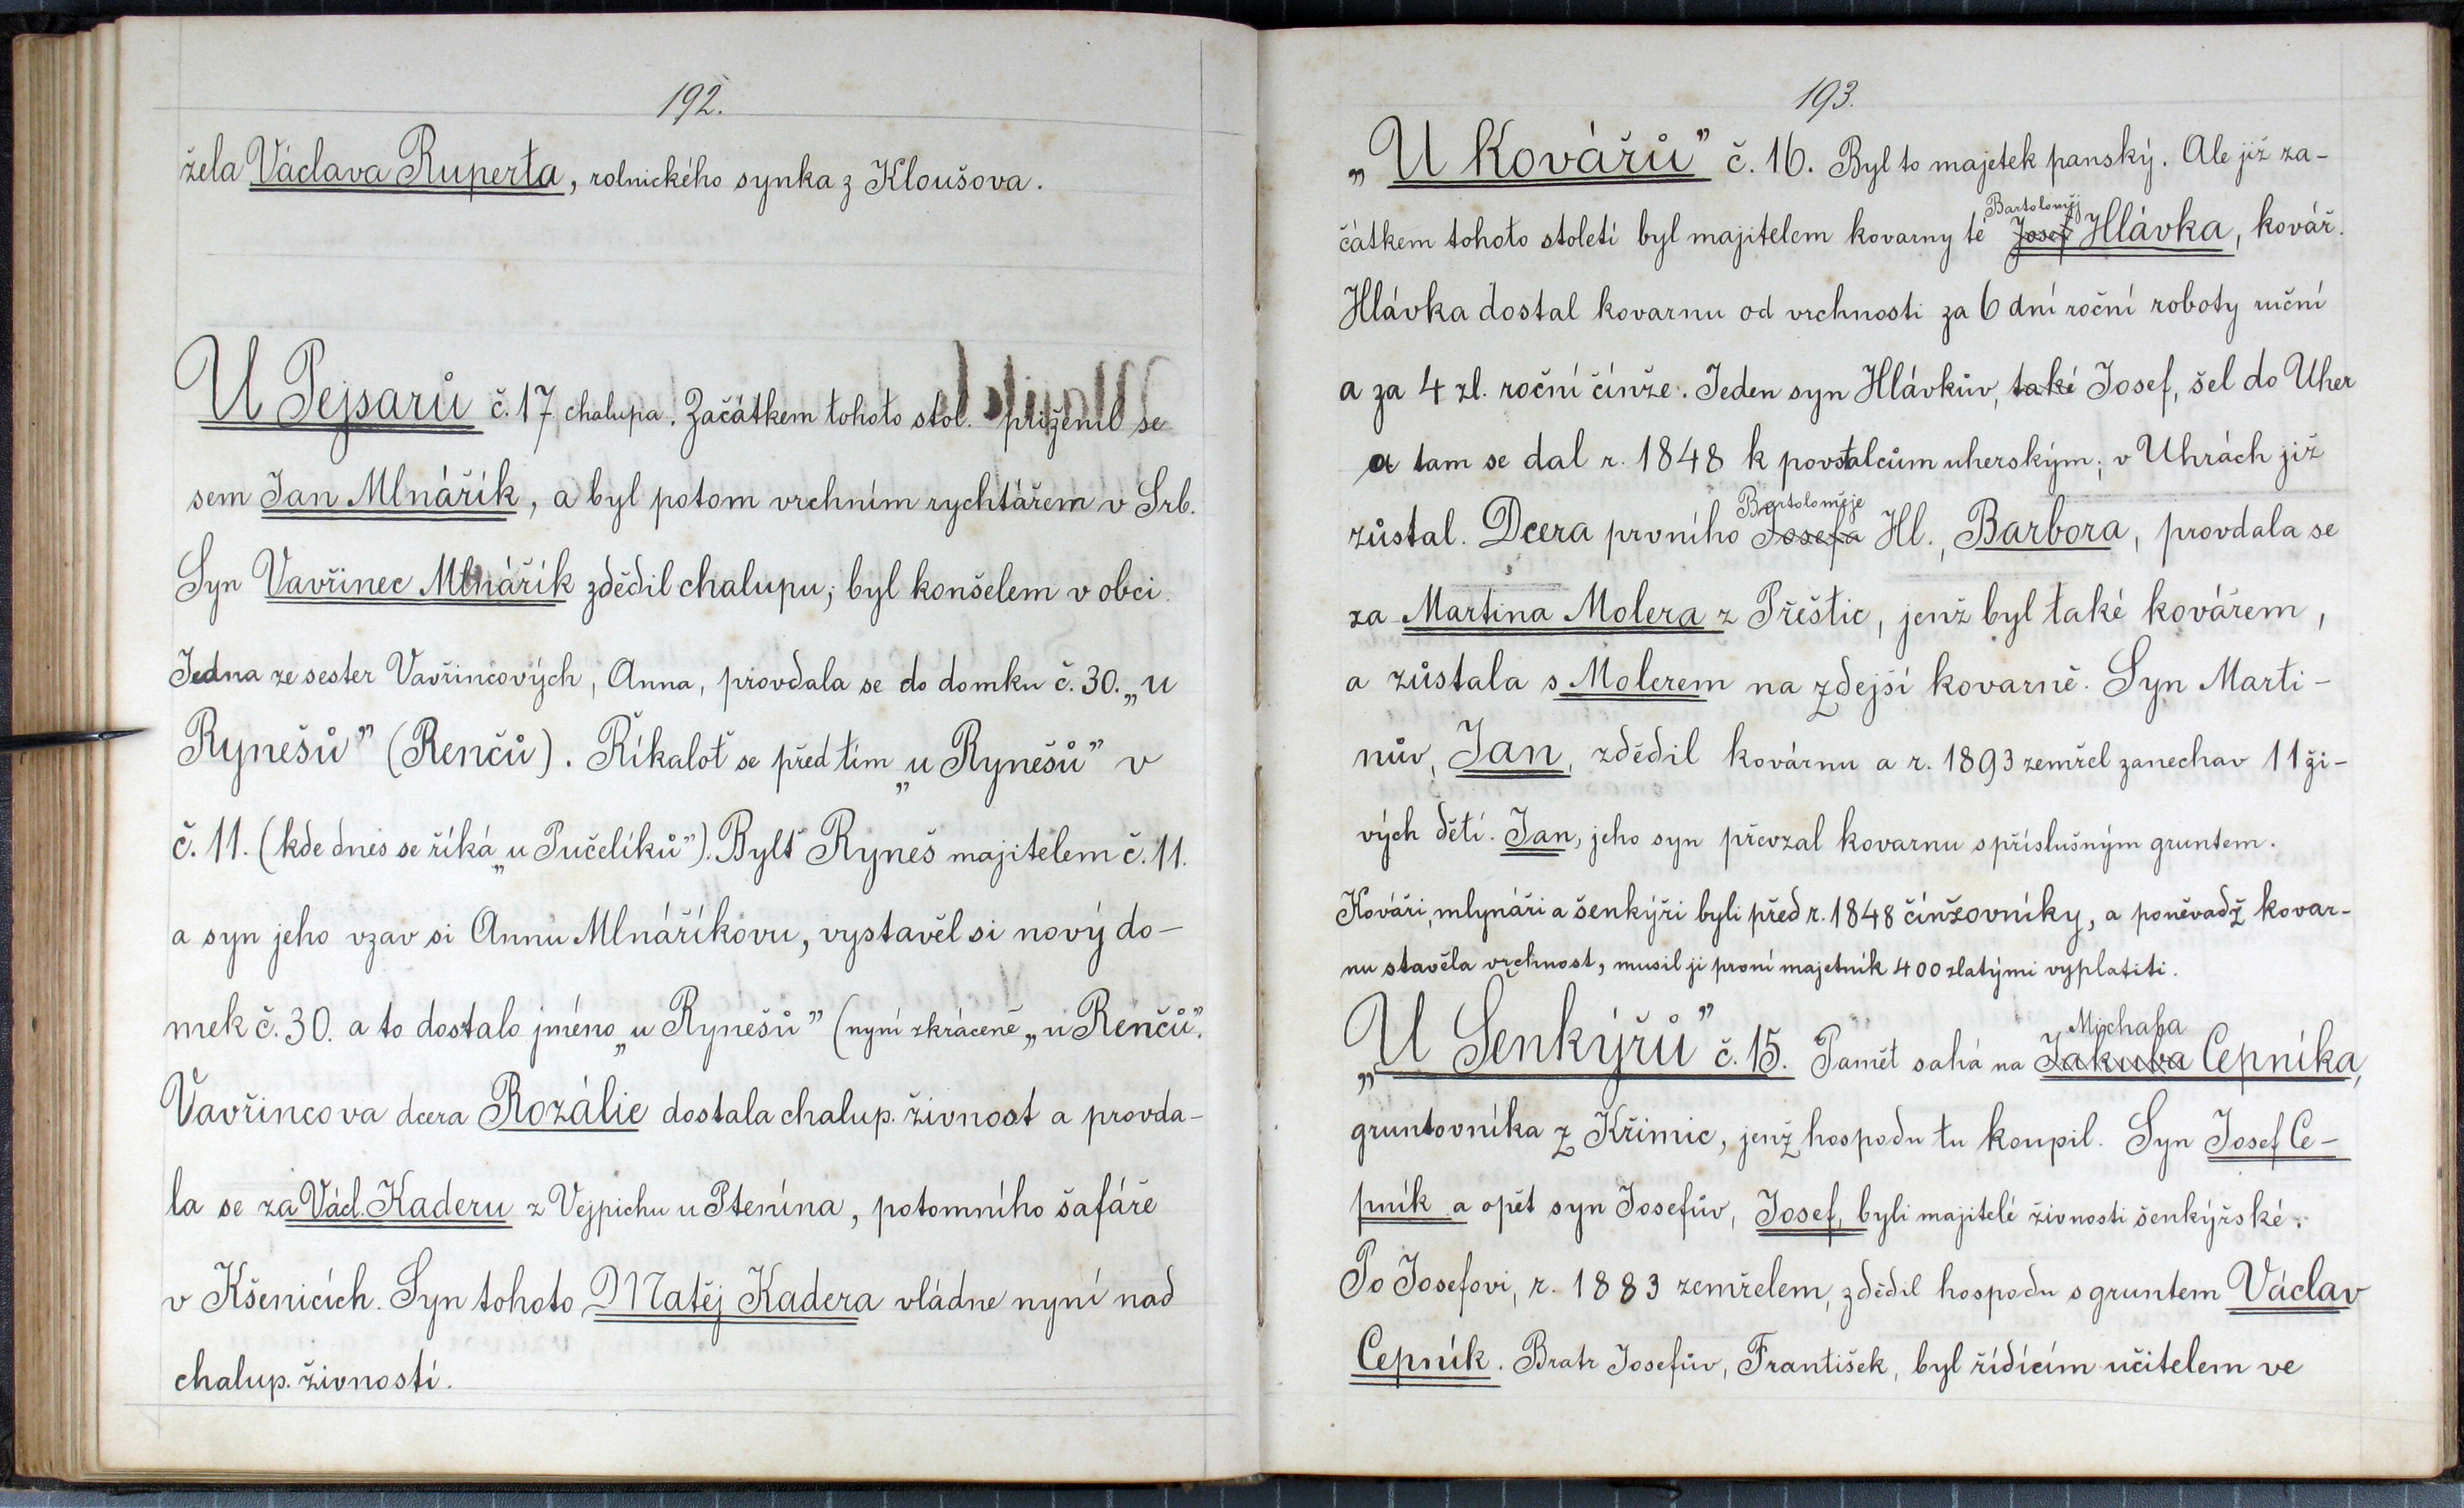 192.
žela Václava Ruperta, rolnického synka z Kloušova.
U Pejsarů č. 17 chalupa. Začátkem tohoto stol. přiženil se
sem Jan Mlnářík, a byl potom vrchním rychtářem v Srb.
Syn Vavřinec Mlnářík zdědil chalupu; byl konšelem v obci.
Jedna ze sester Vavřincových, Anna, provdala se do domku č. 30. „u
Rynešů” (Renčů). Říkaloť se před tím „u Rynešů” v
č. 11. (kde dnes se říká „u Pučelíků”). Bylť Ryneš majitelem č. 11.
a syn jeho vzav si Annu Mlnáříkovu, vystavěl si nový do-
mek č. 30. a to dostalo jméno „u Rynešů” (nyní zkráceně „u Renčů”.
Vavřincova dcera Rozálie dostala chalup. živnost a provda-
la se za Václ. Kaderu z Vejpichu u Ptenína, potomního šafáře
v Kšenicích. Syn tohoto Matěj Kadera vládne nyní nad
chalup. živností.
193.
„U Kovářů” č. 16. Byl to majetek panský. Ale již za-
Bartoloměj
čátkem tohoto století byl majitelem kovarny té Josef Hlávka, kovář.
Hlávka dostal kovarnu od vrchnosti za 6 dní roční roboty ruční
a za 4 zl. roční činže. Jeden syn Hlávkův, také Josef, šel do Uher
a tam se dal r. 1848 k povstalcům uherským; v Uhrách již
Bartoloměje
zůstal. Dcera prvního Josefa Hl., Barbora, provdala se
za Martina Molera z Přeštic, jenž byl také kovářem,
a zůstala s Molerem na zdejší kovarně. Syn Marti-
nův, Jan, zdědil kovárnu a r. 1893 zemřel zanechav 11 ži-
vých dětí. Jan, jeho syn převzal kovarnu s příslušným gruntem.
Kováři, mlynáři a šenkýři byli před r. 1848 činžovníky, a poněvadž kovar-
nu stavěla vrchnost, musil ji první majetník 400 zlatými vyplatiti.
Michala
„U Šenkýřů” č. 15. Paměť sahá na Jakuba Cepníka,
gruntovníka z Křimic, jenž hospodu tu koupil. Syn Josef Ce-
pník a opět syn Josefův, Josef, byli majitelé živnosti šenkýřské.
Po Josefovi, r. 1883 zemřelem, zdědil hospodu s gruntem Václav
Cepník. Bratr Josefův, František, byl řídícím učitelem ve